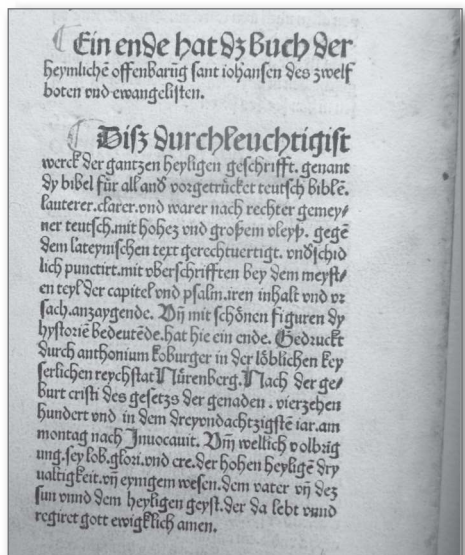 Ein ende hat dz Buch der
heymlichē offenbarūg sant iohansen des zwelf
boten vnd ewangelisten.
Disz durchleuchtigist
werck der gantzen heyligen geschrifft. genant
dy bibel für all and̄ vorgetrücket teutsch biblē.
lauterer.clarer.vnd warer nach rechter gemey/
ner teutsch.mit hohez vnd großem vleyß. gegē
dem lateynischen text gerechtuertigt. vnd̄schid
lich punctirt.mit vberschrifften bey dem meyst/
en teyl der capitel vnd psalm.iren inhalt vnd vr
sach.anzaygende. Vn̄ mit schönen figuren dy
hystoriē bedeutēde.hat hie ein ende. Gedruckt
durch anthonium koburger in der löblichen key
serlichen reychstat Nürenberg. Nach der ge/
burt cristi des gesetzs der genaden . vierzehen
hundert vnd in dem dreyvndachtzigstē iar.am
montag nach Inuocauit. Vm̄ wellich volbrīg
ung.sey lob.glori.vnd ere.der hohen heyligē dry
ualtigkeit.vn̄ eynigem wesen.dem vater vn̄ dez
sun vnnd dem heyligen geyst.der da lebt vnnd
regiret gott ewigklich amen.